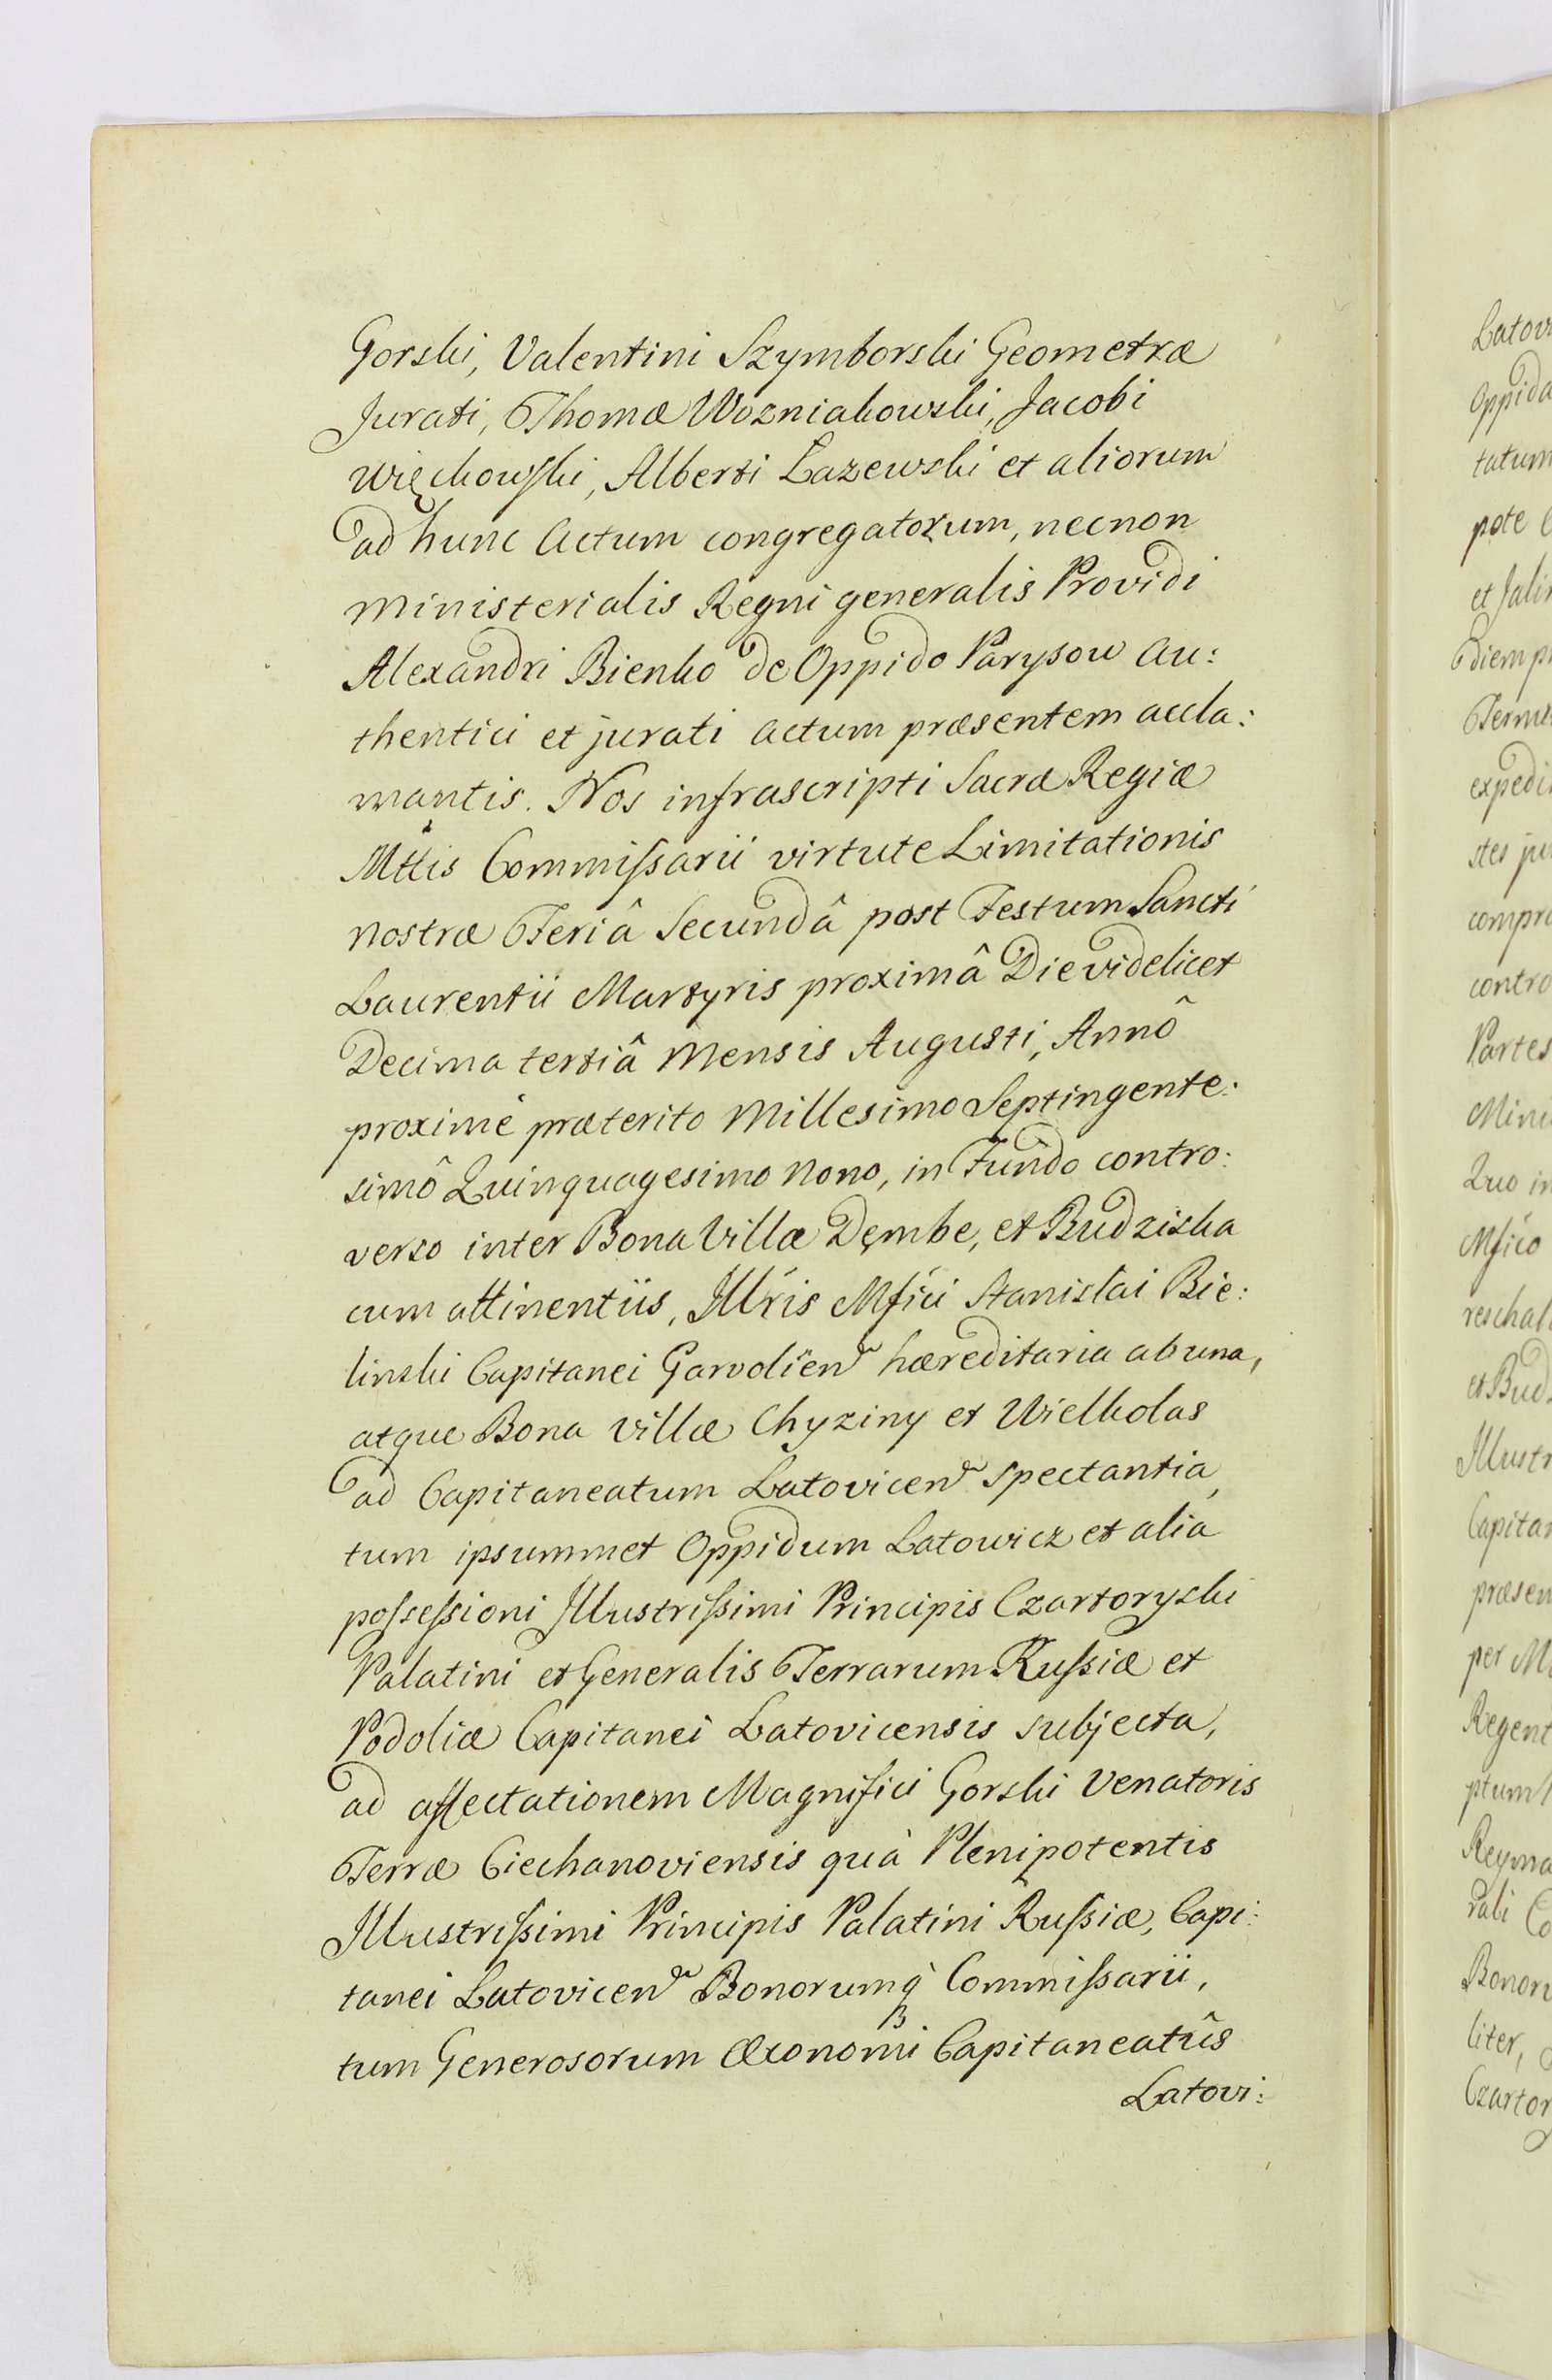 Gorski, Valentini Szymborski Geometræ
Jurati, Thomæ Wozniakowski, Jacobi
Więckowski, Alberti Łazewski et aliorum
ad hunc Actum congregatorum, necnon
Ministerialis Regni generalis Providi
Alexandri Bienko de Oppido Parysow Au:
thentici et jurati actum præsentem accla:
mantis. Nos infrascripti Sacræ Regiæ
Mttis Commissarii virtute Limitationis
nostræ Feriâ Secundâ post Festum Sancti
Laurentii Martyris proximâ Die videlicet
Decima tertiâ Mensis Augusti, Annô
proximè præterito Millesimo Septingente:
simô Quinquagesimo Nono, in Fundo contro:
verso inter Bona Villæ Dęmbe, et Budziska
cum attinentiis, Illris Mfici Stanislai Bie:
linski Capitanei Garvolien hæreditaria ab una,
atque Bona Villæ Chyziny et Wielkolas
ad Capitaneatum Latovicen spectantia,
tum ipsummet Oppidum Latowicz et alia
possessioni Illustrissimi Principis Czartoryski
Palatini et Generalis Terrarum Russiæ et
Podoliæ Capitanei Latovicensis subjecta,
ad affectationem Magnifici Gorski Venatoris
Terræ Ciechanoviensis quà Plenipotentis
Illustrissimi Principis Palatini Russiæ, Capi:
tanei Latovicen Bonorumq Commissarii,
tum Generosorum Œconomi Capitaneatûs
Latovi:
Latovi
Oppida
tatum
pote
et
diem
expedi
stes
compro
contro
Partes
Mini
Quo in
Mfico
reschal
et Bud
Illustr
Capitan
præsen
per
Regent
ptum
Reyma
rali Co
Bonoru
liter,
Czartor